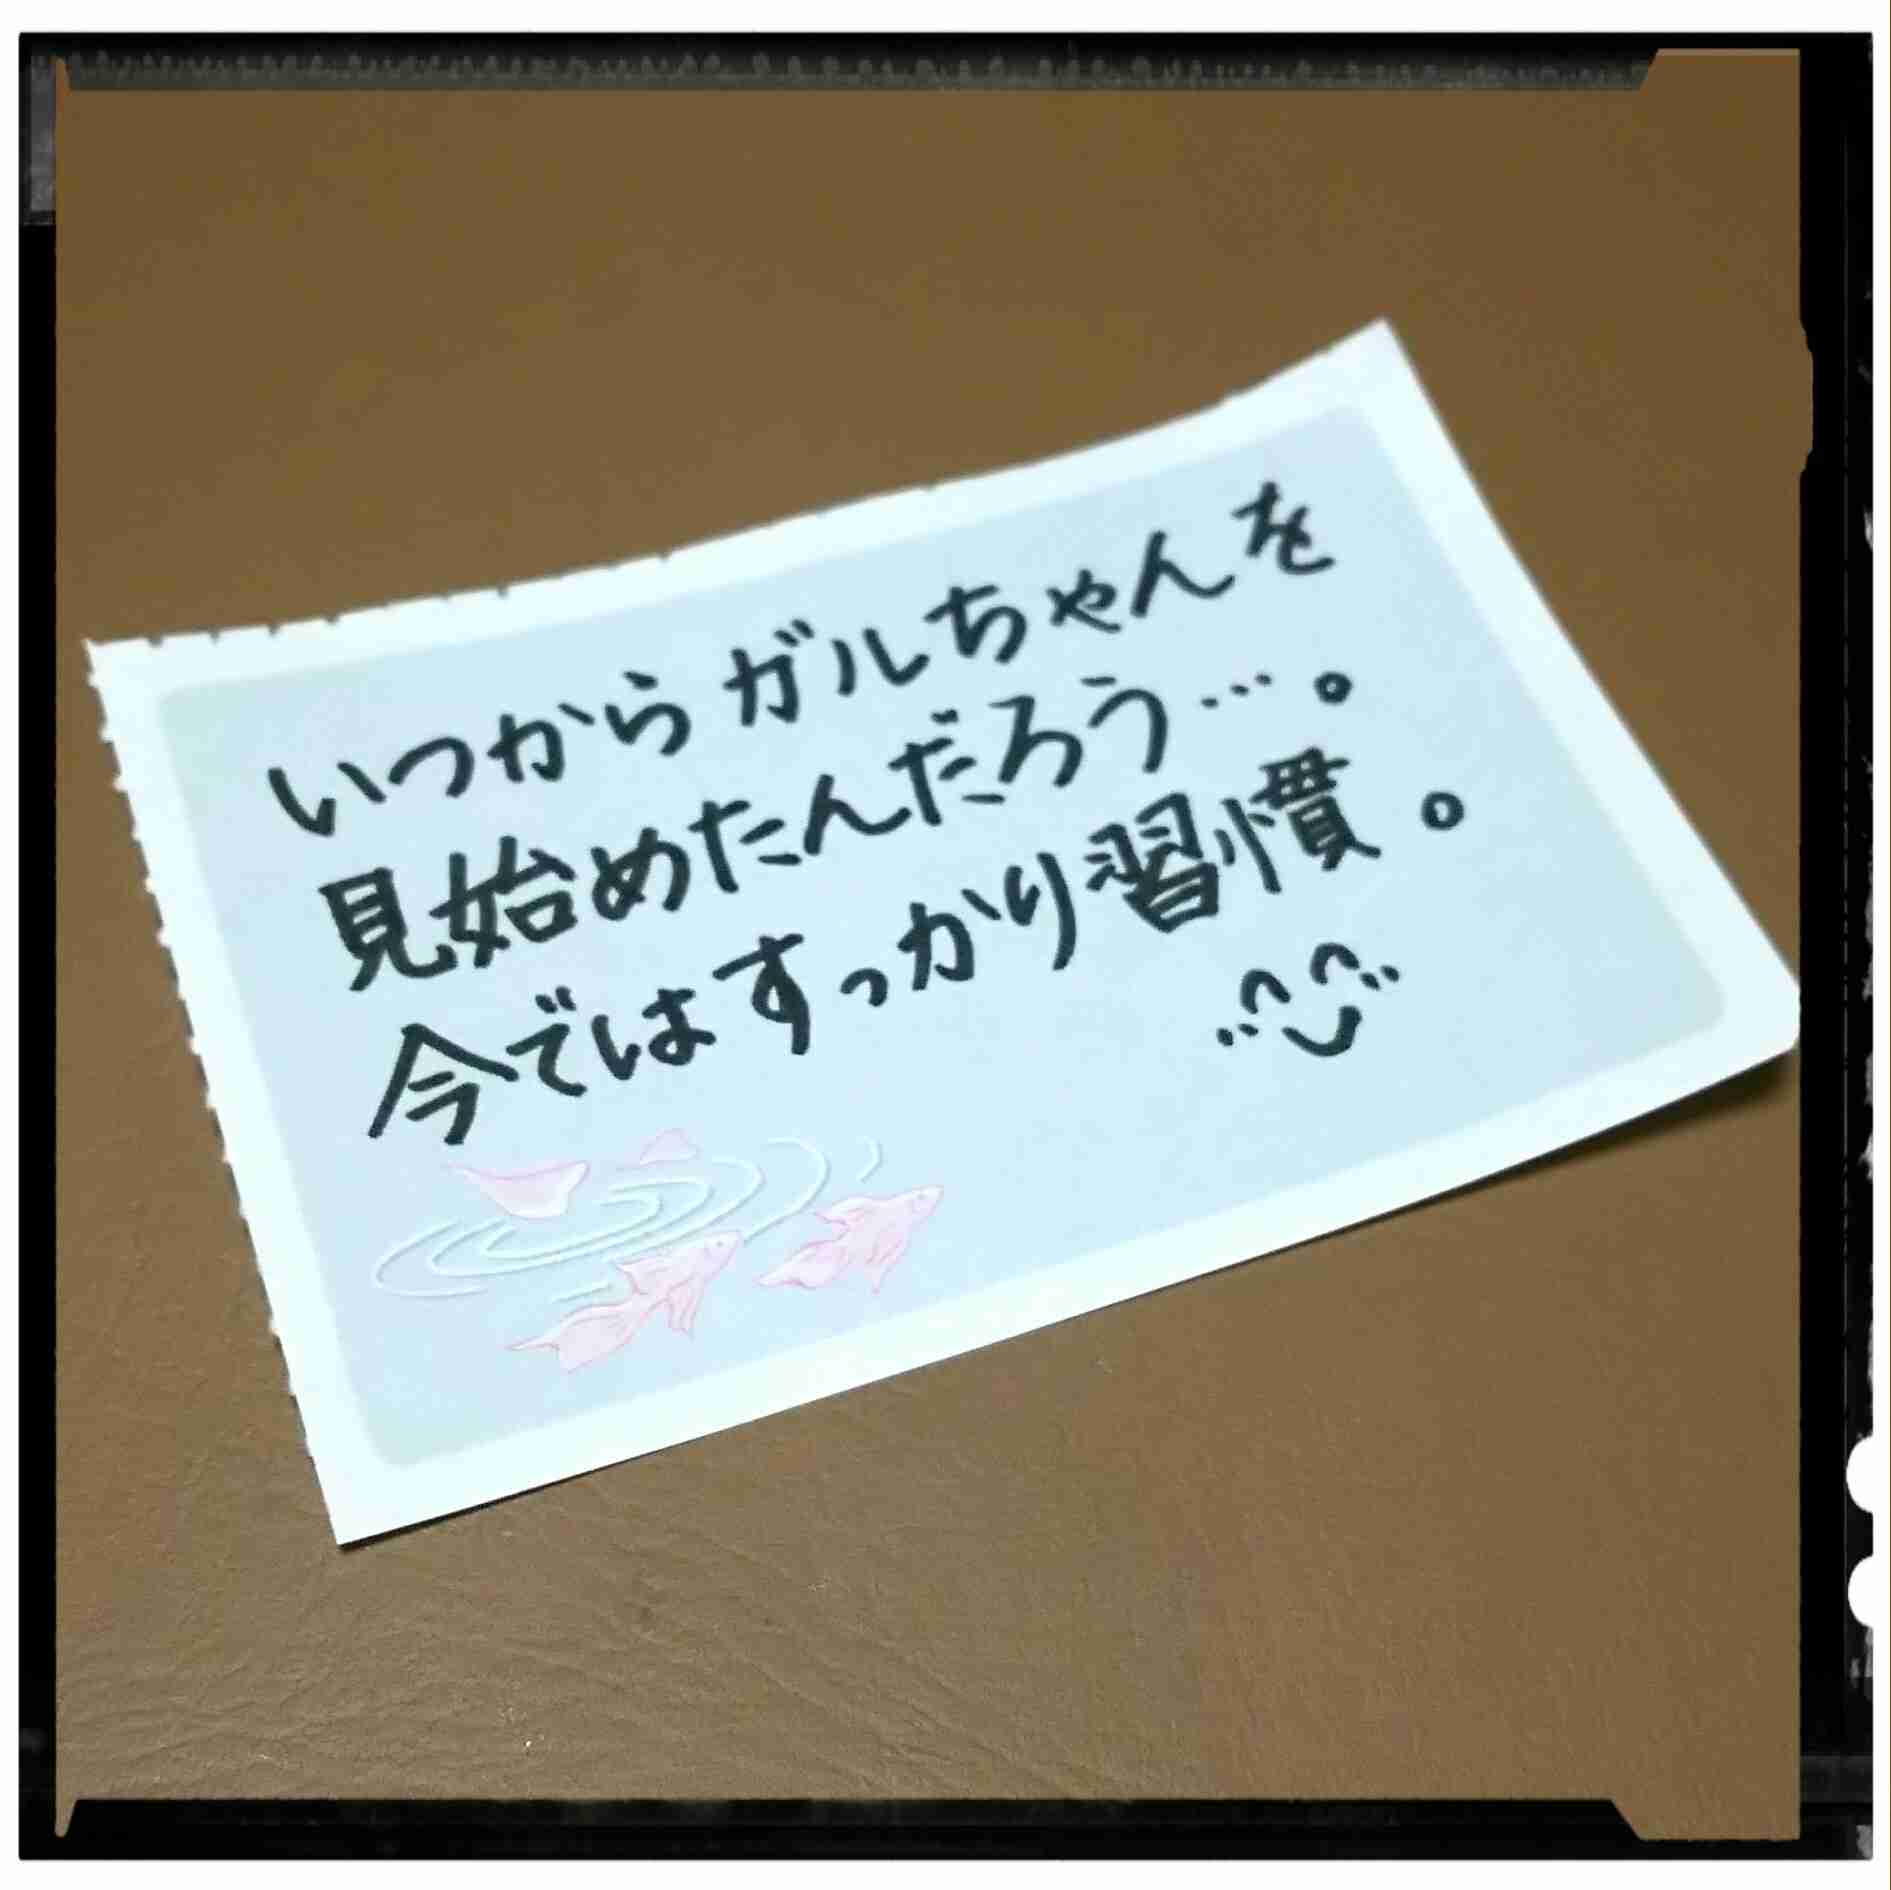 いつからガルちゃんを
見始めたんだろう…。
今ではすっかり習慣。